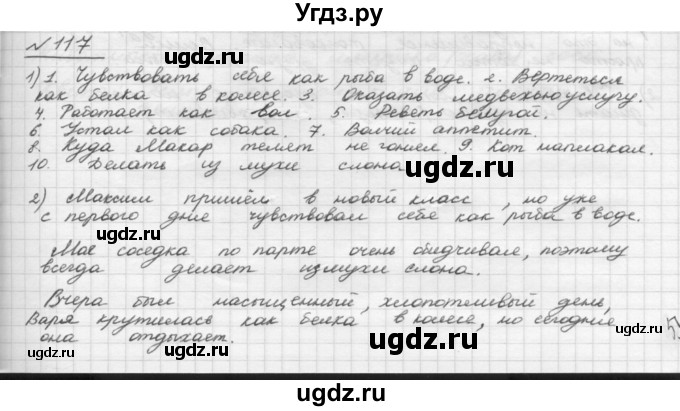 Угдз.ру
№ 117
1) 1. Чувствовать себя как рыба в воде. 2. Вертеться
как белка в колесе. 3. Оказать медвежью услугу.
4. Работает как вол. 5. Реветь белугой.
6. Устал как собака. 7. Волчий аппетит.
8. Куда Макар телят не гонял. 9. Кот наплакал.
10. Делать из мухи слона
2) Максим пришёл в новый класс, но уже
с первого дня чувствовал себя как рыба в воде.
Моя соседка по парте очень обидчивая, поэтому
всегда делает из мухи слона.
Вчера был насыщенный, хлопотливый день,
Варя крутилась как белка в колесе, но сегодня
она отдыхает.
угдз.ru
угдз.ru
угдз.ru
угдз.ru
угдз.ru
угдз.ru
угдз.ru
угдз.ru
угдз.ru
угдз.ru
угдз.ru
угдз.ru